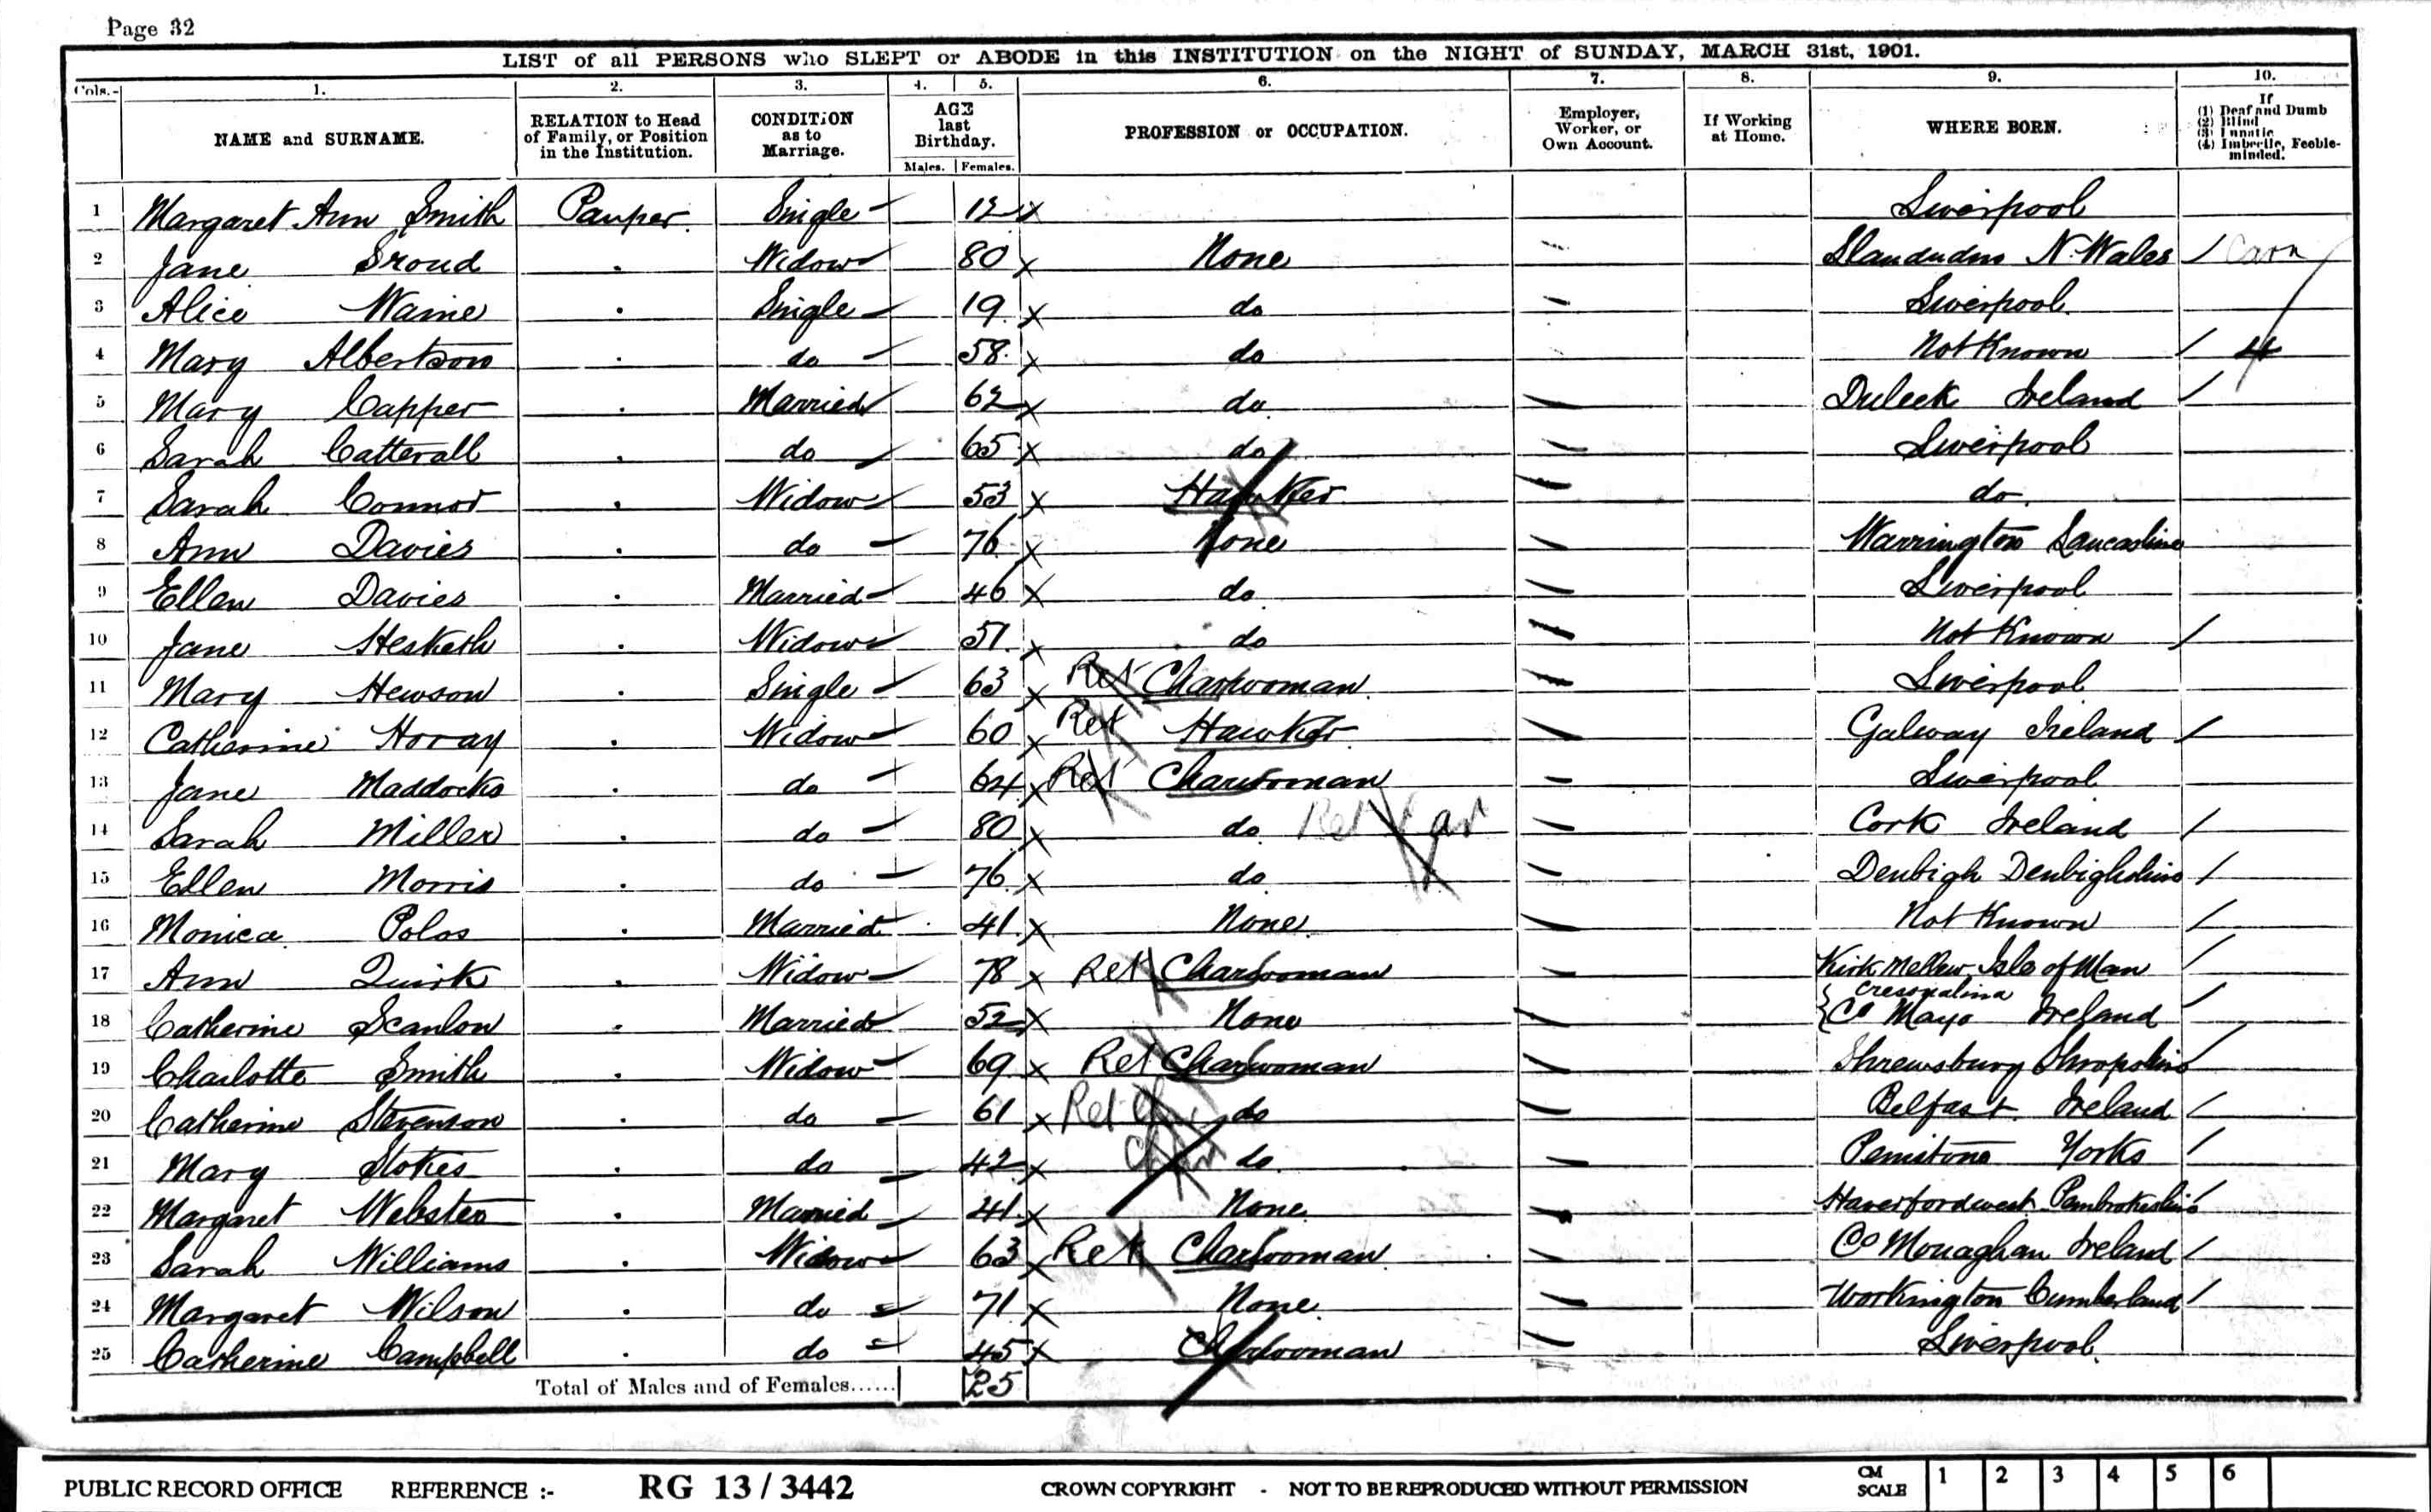 Page 32
LIST of all PERSONS who SLEPT or ABODE in this INSTITUTION on the NIGHT of SUNDAY, MARCH 31st, 1901.
Cols.- 1. 2. 3. 4. 5. 6. 7. 8. 9. 10.
NAME and SURNAME. RELATION to Head of Family, or Position in the Institution. CONDITION as to Marriage. AGE last Birthday. Males. Females. PROFESSION or OCCUPATION. Employer, Worker, or Own Account. If Working at Home. WHERE BORN. If (1) Deaf and Dumb (2) Blind (3) Lunatic (4) Imbecile, Feeble-minded.
1 Margaret Ann Smith Pauper Single 12 x Liverpool
2 Jane Sroud . Widow 80 x None Llandudno N. Wales /
3 Alice Waine . Single 19 x do Liverpool
4 Mary Albertson . do 58 x do Not Known / 4
5 Mary Capper . Married 62 x do Duleek Ireland /
6 Sarah Catterall . do 65 x do Liverpool
7 Sarah Connor . Widow 53 x Hawker do
8 Ann Davies . do 76 x None Warrington Lancashire
9 Ellen Davies . Married 46 x do Liverpool
10 Jane Hesketh . Widow 51 x do Not Known /
11 Mary Hewson . Single 63 x Ret Charwoman Liverpool
12 Catherine Horay . Widow 60 x Ret Hawker Galway Ireland /
13 Jane Maddocks . do 64 x Ret Charwoman Liverpool
14 Sarah Miller . do 80 x do Ret Cork Ireland /
15 Ellen Morris . do 76 x do Denbigh Denbighshire /
16 Monica Polos . Married 41 x None Not Known /
17 Ann Quirk . Widow 78 x Ret Charwoman Kirk Mellew Isle of Man /
18 Catherine Scanlon . Married 52 x None Co Mayo Ireland /
19 Charlotte Smith . Widow 69 x Ret Charwoman Shrewsbury Shropshire /
20 Catherine Stevenson . do 61 x Ret do Belfast Ireland /
21 Mary Stokes . do 42 x do Penistone Yorks /
22 Margaret Webster . Married 41 x None Haverfordwest Pembrokeshire /
23 Sarah Williams . Widow 63 x Ret Charwoman Co Monaghan Ireland /
24 Margaret Wilson . do 71 x None Workington Cumberland /
25 Catherine Campbell . do 45 x Charwoman Liverpool
Total of Males and of Females...... 25
PUBLIC RECORD OFFICE REFERENCE :- RG 13 / 3442 CROWN COPYRIGHT - NOT TO BE REPRODUCED WITHOUT PERMISSION CM SCALE 1 2 3 4 5 6